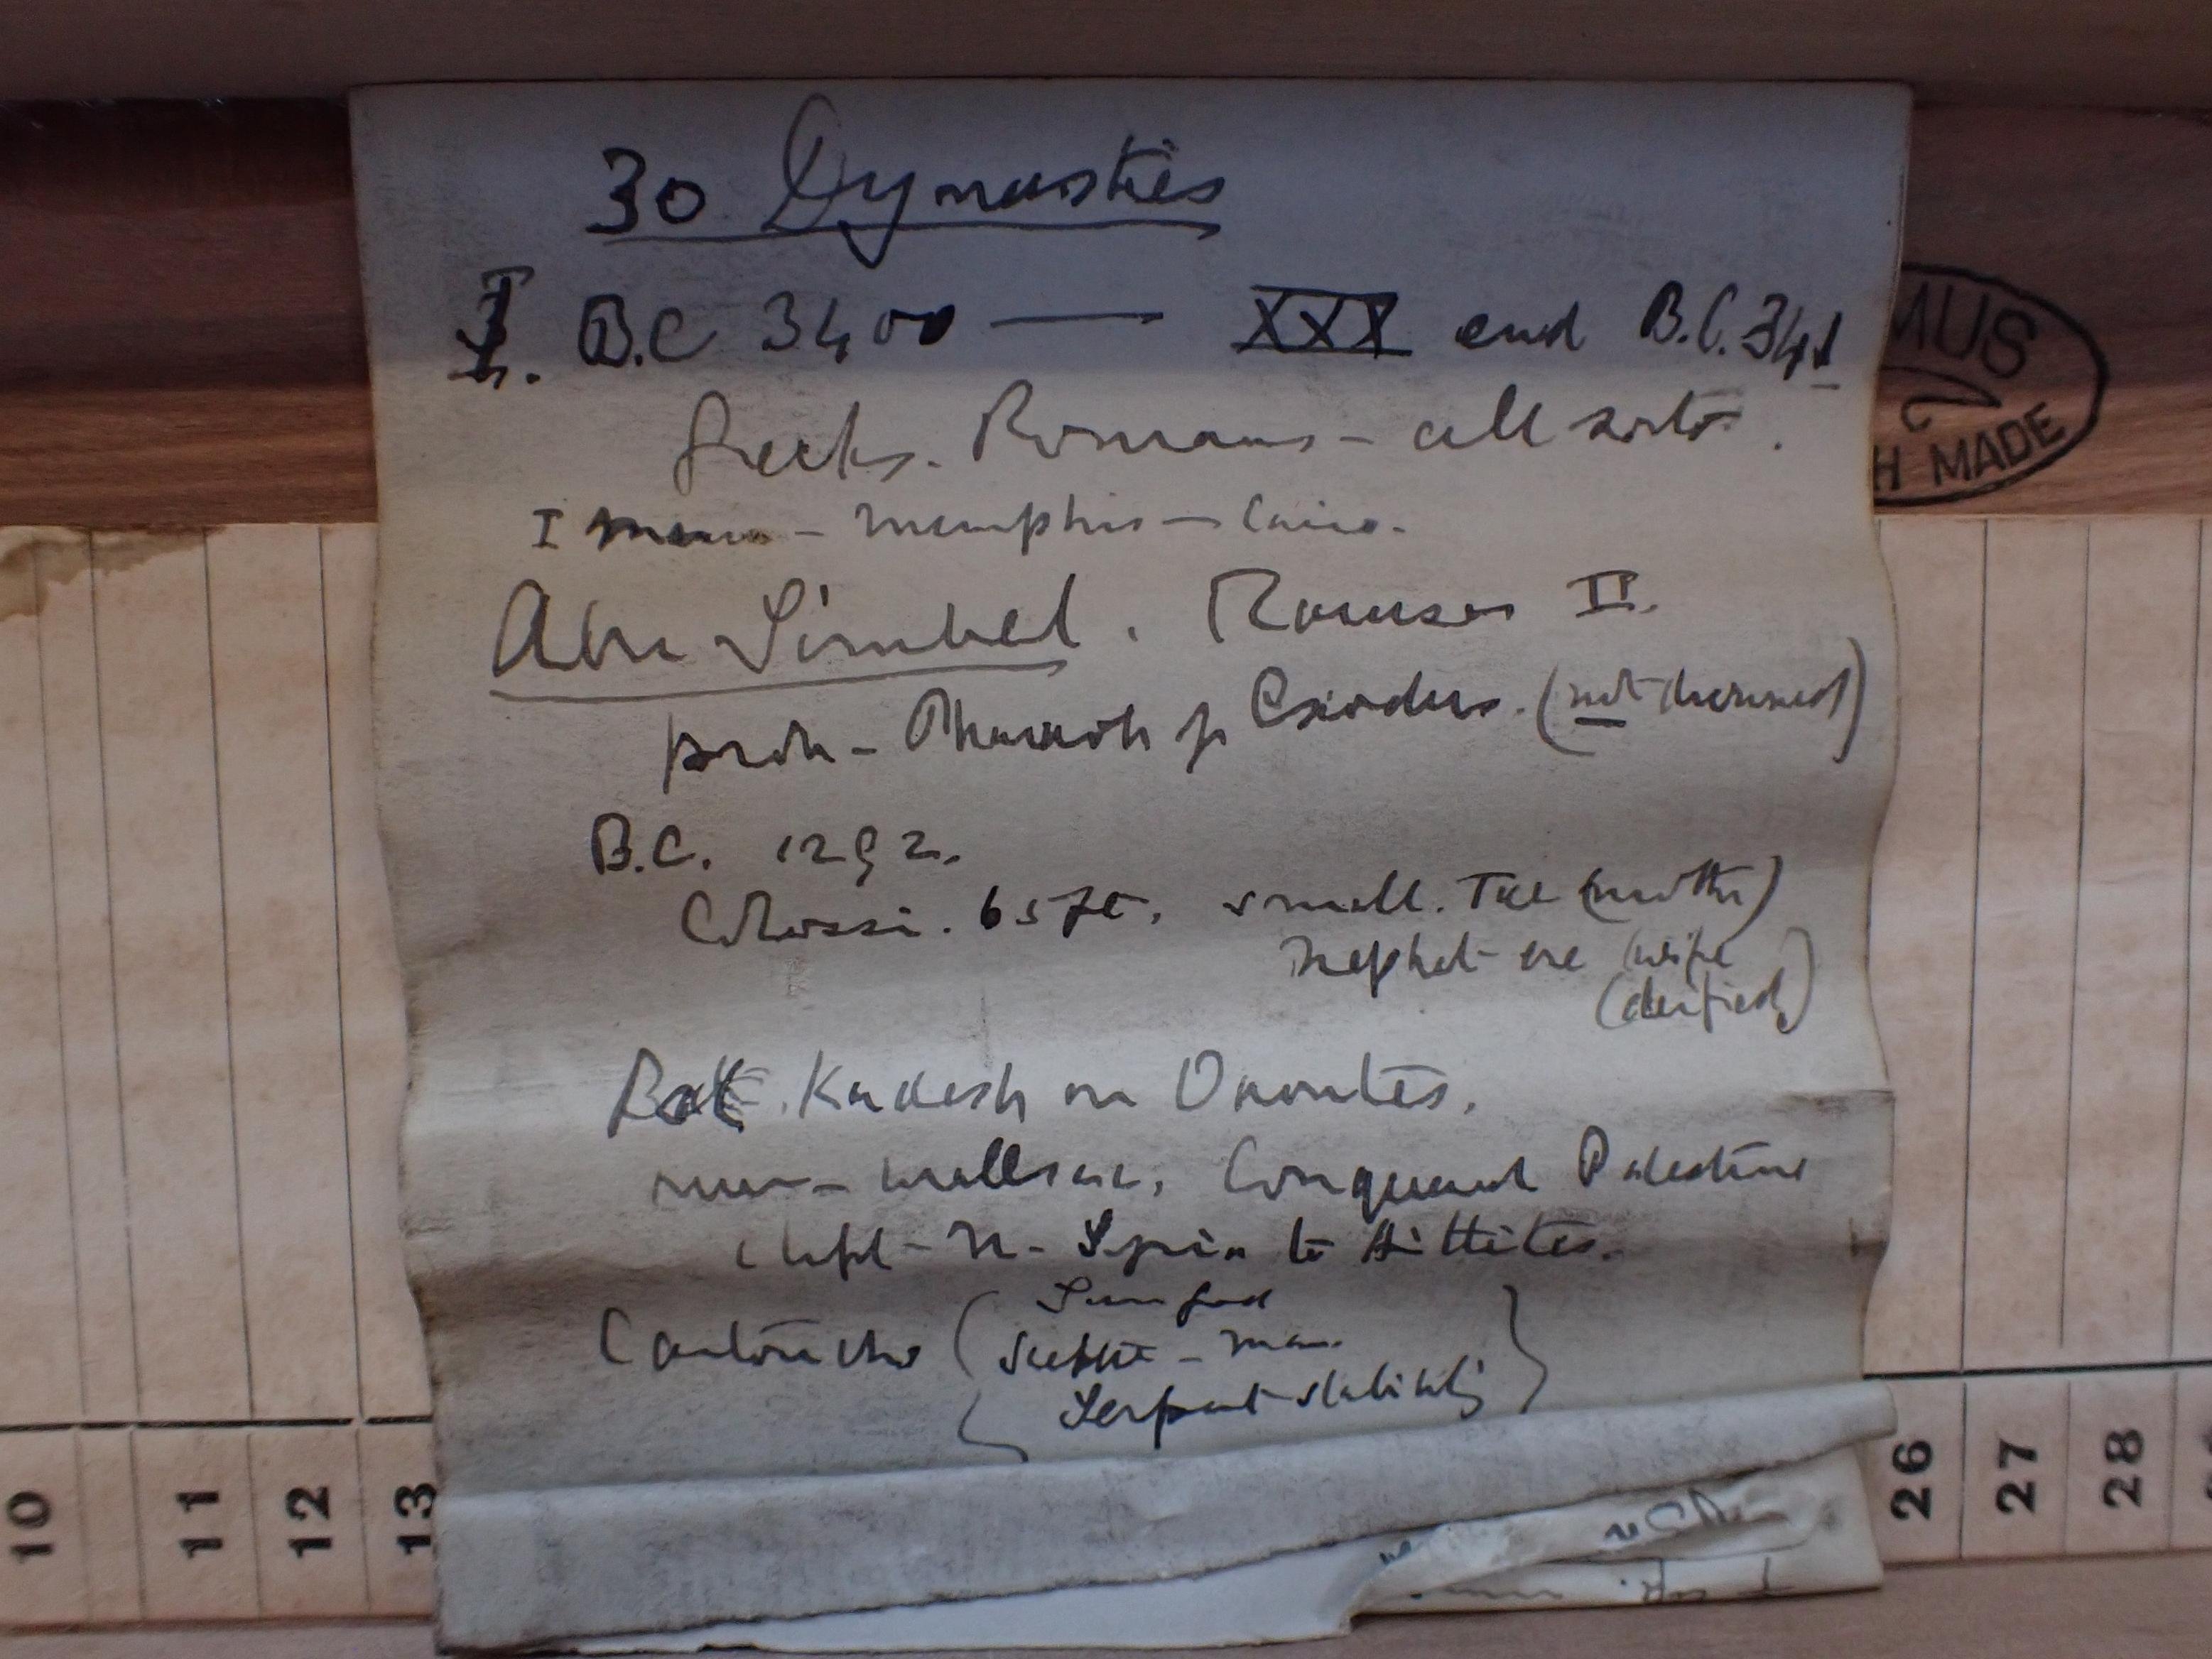 30 Dynasties
I. B.C 3400 — XXX end B.C. 341
Greeks. Romans - all sorts.
I Menes - Memphis - Cairo.
Abu Simbel. Rameses II.
prob - Pharaoh of Exodus. (not drowned)
B.C. 1292.
Colossi. 65 ft. small. Tue (mother)
Nephet-ere (wife
(deified)
Batt. Kadesh on Orontes.
Conquered Palestine
& left N. Syria to Hittites.
Cartouche ( Sun god
Sceptre - man
Serpent stability )
MUS
H MADE
10 11 12 13 26 27 28